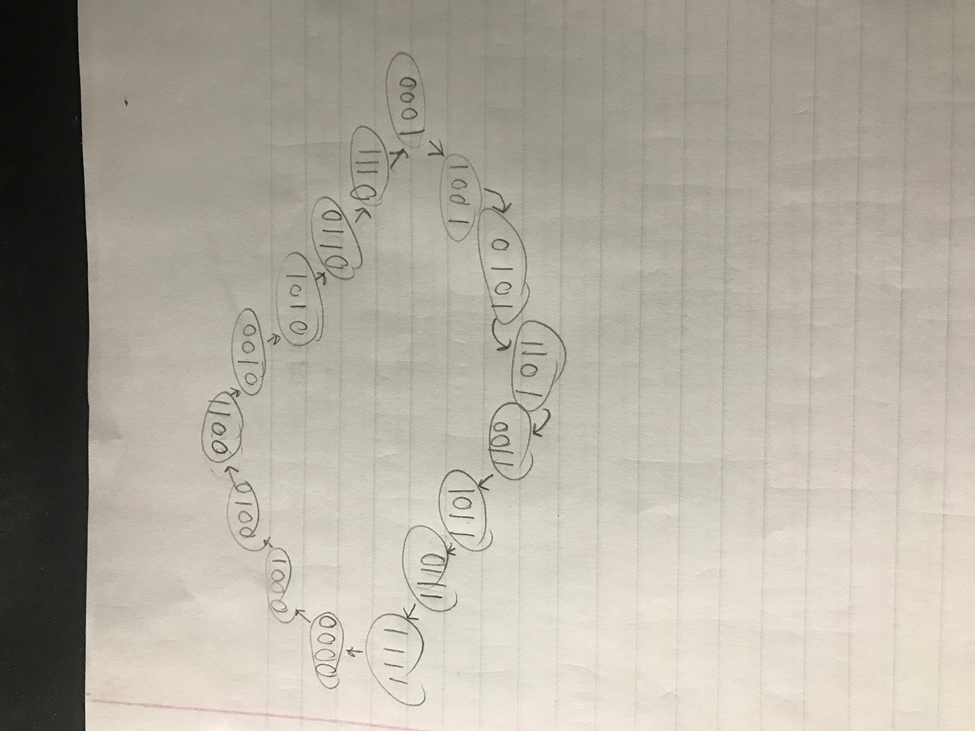 0001
1001
0101
1101
0011
1011
0111
1111
0000
1000
0100
1100
0010
1010
0110
1110